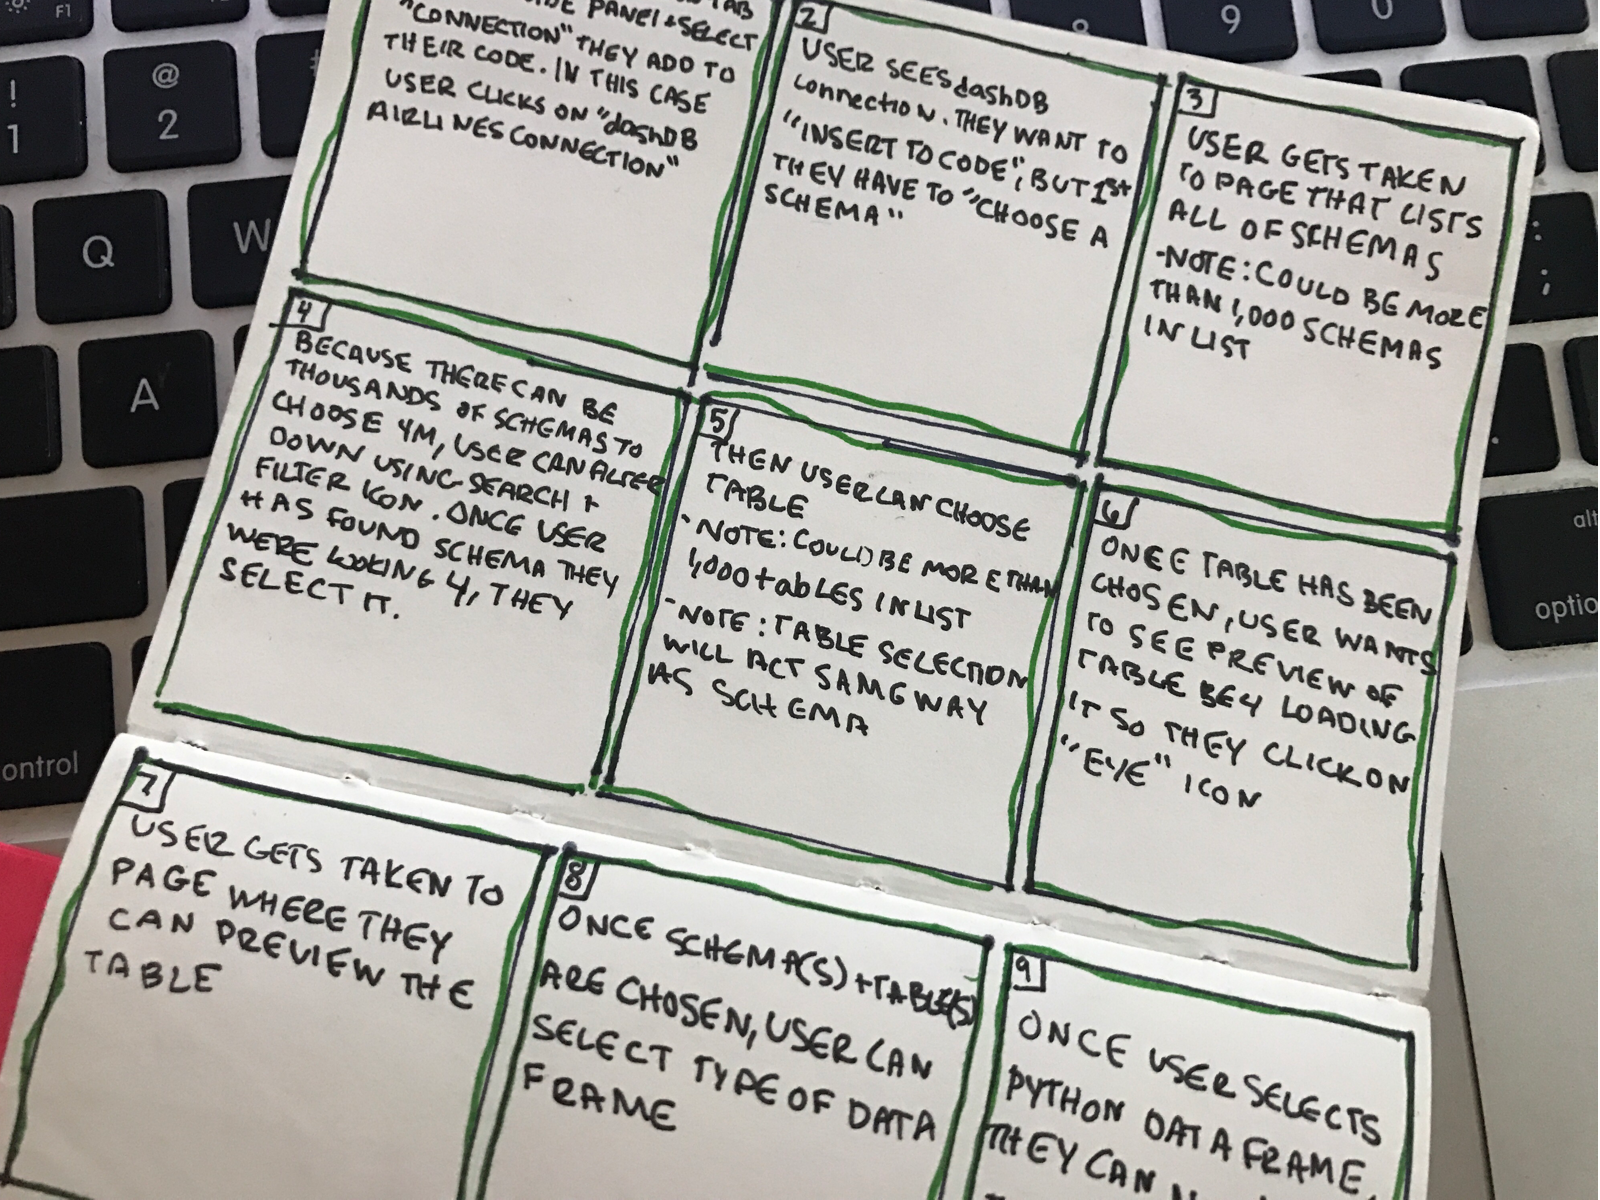 TAB
PANEL + SELECT
"CONNECTION" THEY ADD TO
THEIR CODE. IN THIS CASE
USER CLICKS ON "dashDB
AIRLINES CONNECTION"
2
USER SEES dashDB
connection. THEY WANT TO
"INSERT TO CODE", BUT 1st
THEY HAVE TO "CHOOSE A
SCHEMA"
3
USER GETS TAKEN
TO PAGE THAT LISTS
ALL OF SCHEMAS
-NOTE: COULD BE MORE
THAN 1,000 SCHEMAS
IN LIST
4
BECAUSE THERE CAN BE
THOUSANDS OF SCHEMAS TO
CHOOSE 4M, USER CAN ALTER
DOWN USING SEARCH +
FILTER ICON. ONCE USER
HAS FOUND SCHEMA THEY
WERE LOOKING 4, THEY
SELECT IT.
5
THEN USER CAN CHOOSE
TABLE
-NOTE: COULD BE MORE THAN
1,000 tables IN LIST
-NOTE: TABLE SELECTION
WILL ACT SAME WAY
AS SCHEMA
6
ONCE TABLE HAS BEEN
CHOSEN, USER WANTS
TO SEE PREVIEW OF
TABLE BE4 LOADING
IT SO THEY CLICK ON
"EYE" ICON
7
USER GETS TAKEN TO
PAGE WHERE THEY
CAN PREVIEW THE
TABLE
8
ONCE SCHEMA(S) + TABLE(S)
ARE CHOSEN, USER CAN
SELECT TYPE OF DATA
FRAME
9
ONCE USER SELECTS
PYTHON DATA FRAME,
THEY CAN
F1
!
1
@
2
9
0
Q
W
A
:
;
.
alt
optio
ontrol